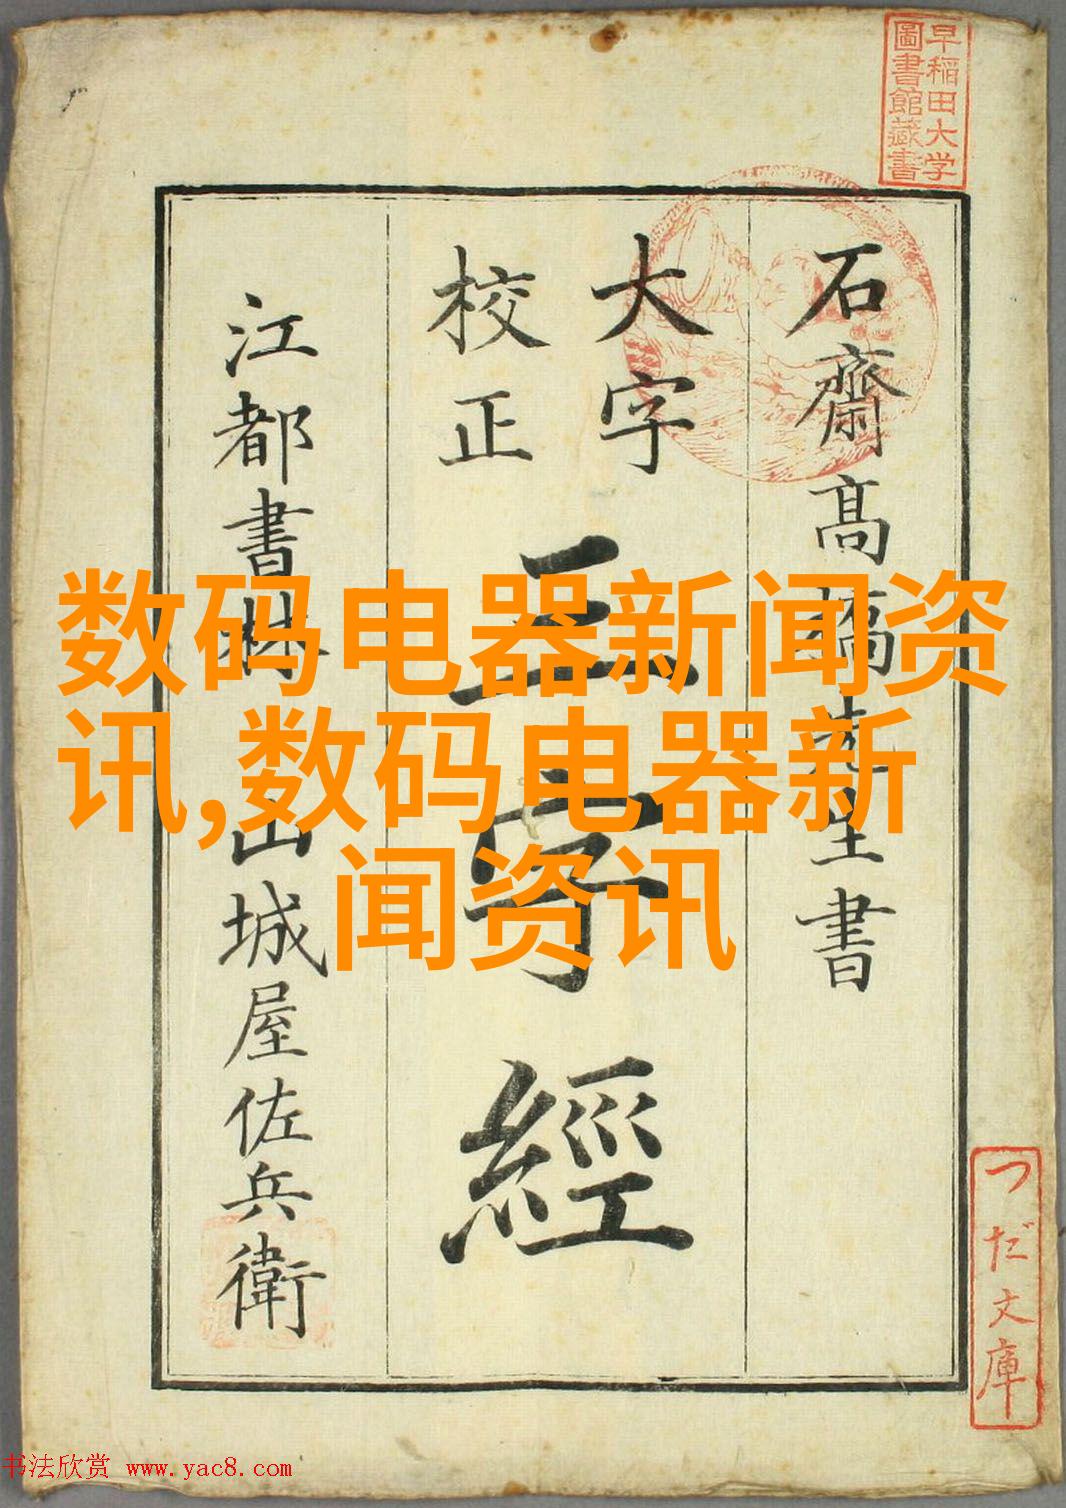 早稲田大学
圖書館藏書
石齋高橋先生書
大字
校正
三字經
江都書林 山城屋佐兵衛
数码电器新闻资
讯,数码电器新
闻资讯
つだ文庫
书法欣赏 www.yac8.com